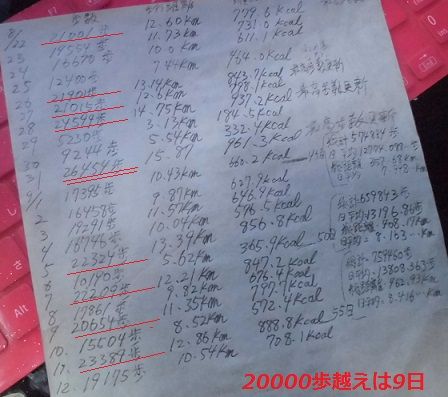 歩数
8/22 21001歩 12.60km 779.6kcal
23 19554歩 11.73km 731.0kcal
24 16670歩 10.0km 611.1kcal
25 12400歩 7.44km 464.0kcal
26 21901歩 13.14km 843.7kcal 最高歩数更新
27 21015歩 12.6km 798.1kcal
28 24594歩 14.75km 937.2kcal 最高歩数更新
29 5230歩 3.13km 184.5kcal
30 9244歩 5.54km 332.4kcal
31 26454歩 15.87 961.3kcal 最高歩数更新
9/1 17395歩 10.43km 660.2kcal
2 16458歩 9.87km 627.9kcal
3 19291歩 11.57km 646.9kcal
4 10.04km 576.5kcal
5 22324歩 13.39km 856.8kcal
6 5.62km 365.9kcal 50日
7 22209歩 12.21km 847.2kcal
8 17861歩 9.82km 676.4kcal
9 20654歩 11.35km 797.7kcal
10. 15504歩 8.52km 572.4kcal
11. 23389歩 12.86km 888.8kcal 55日
12. 19175歩 10.54km 708.1kcal
総計 659843歩
日平均 13196.86歩
総計 759460歩
20000歩越えは9日